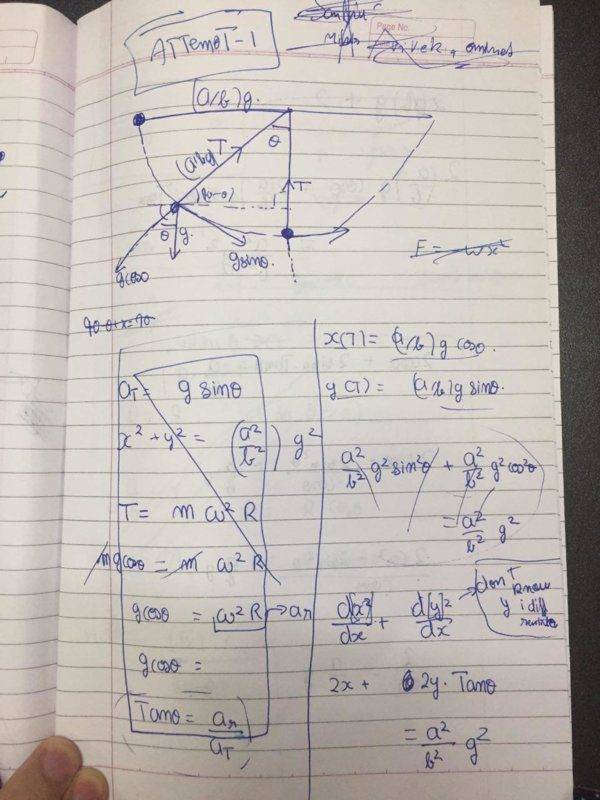 ATTEMPT-1
Page No.
(a/b)g.
θ
(a/b)g T
T
(90-θ)
θ g.
gsinθ.
gcosθ
F = -ωx²
90-θ+x=90
a_T = g sinθ
x² + y² = (a²/b²) g²
T = m ω² R
mgcosθ = m ω² R
gcosθ = ω² R → ar
gcosθ =
Tanθ = ar/a_T
x(T) = (a/b) g cosθ.
y(T) = (a/b) g sinθ.
a²/b² g² sin²θ + a²/b² g² cos²θ
= a²/b² g²
d[x²]/dx + d[y]²/dx → don't know
y i diff
2x + 2y. Tanθ
= a²/b² g²